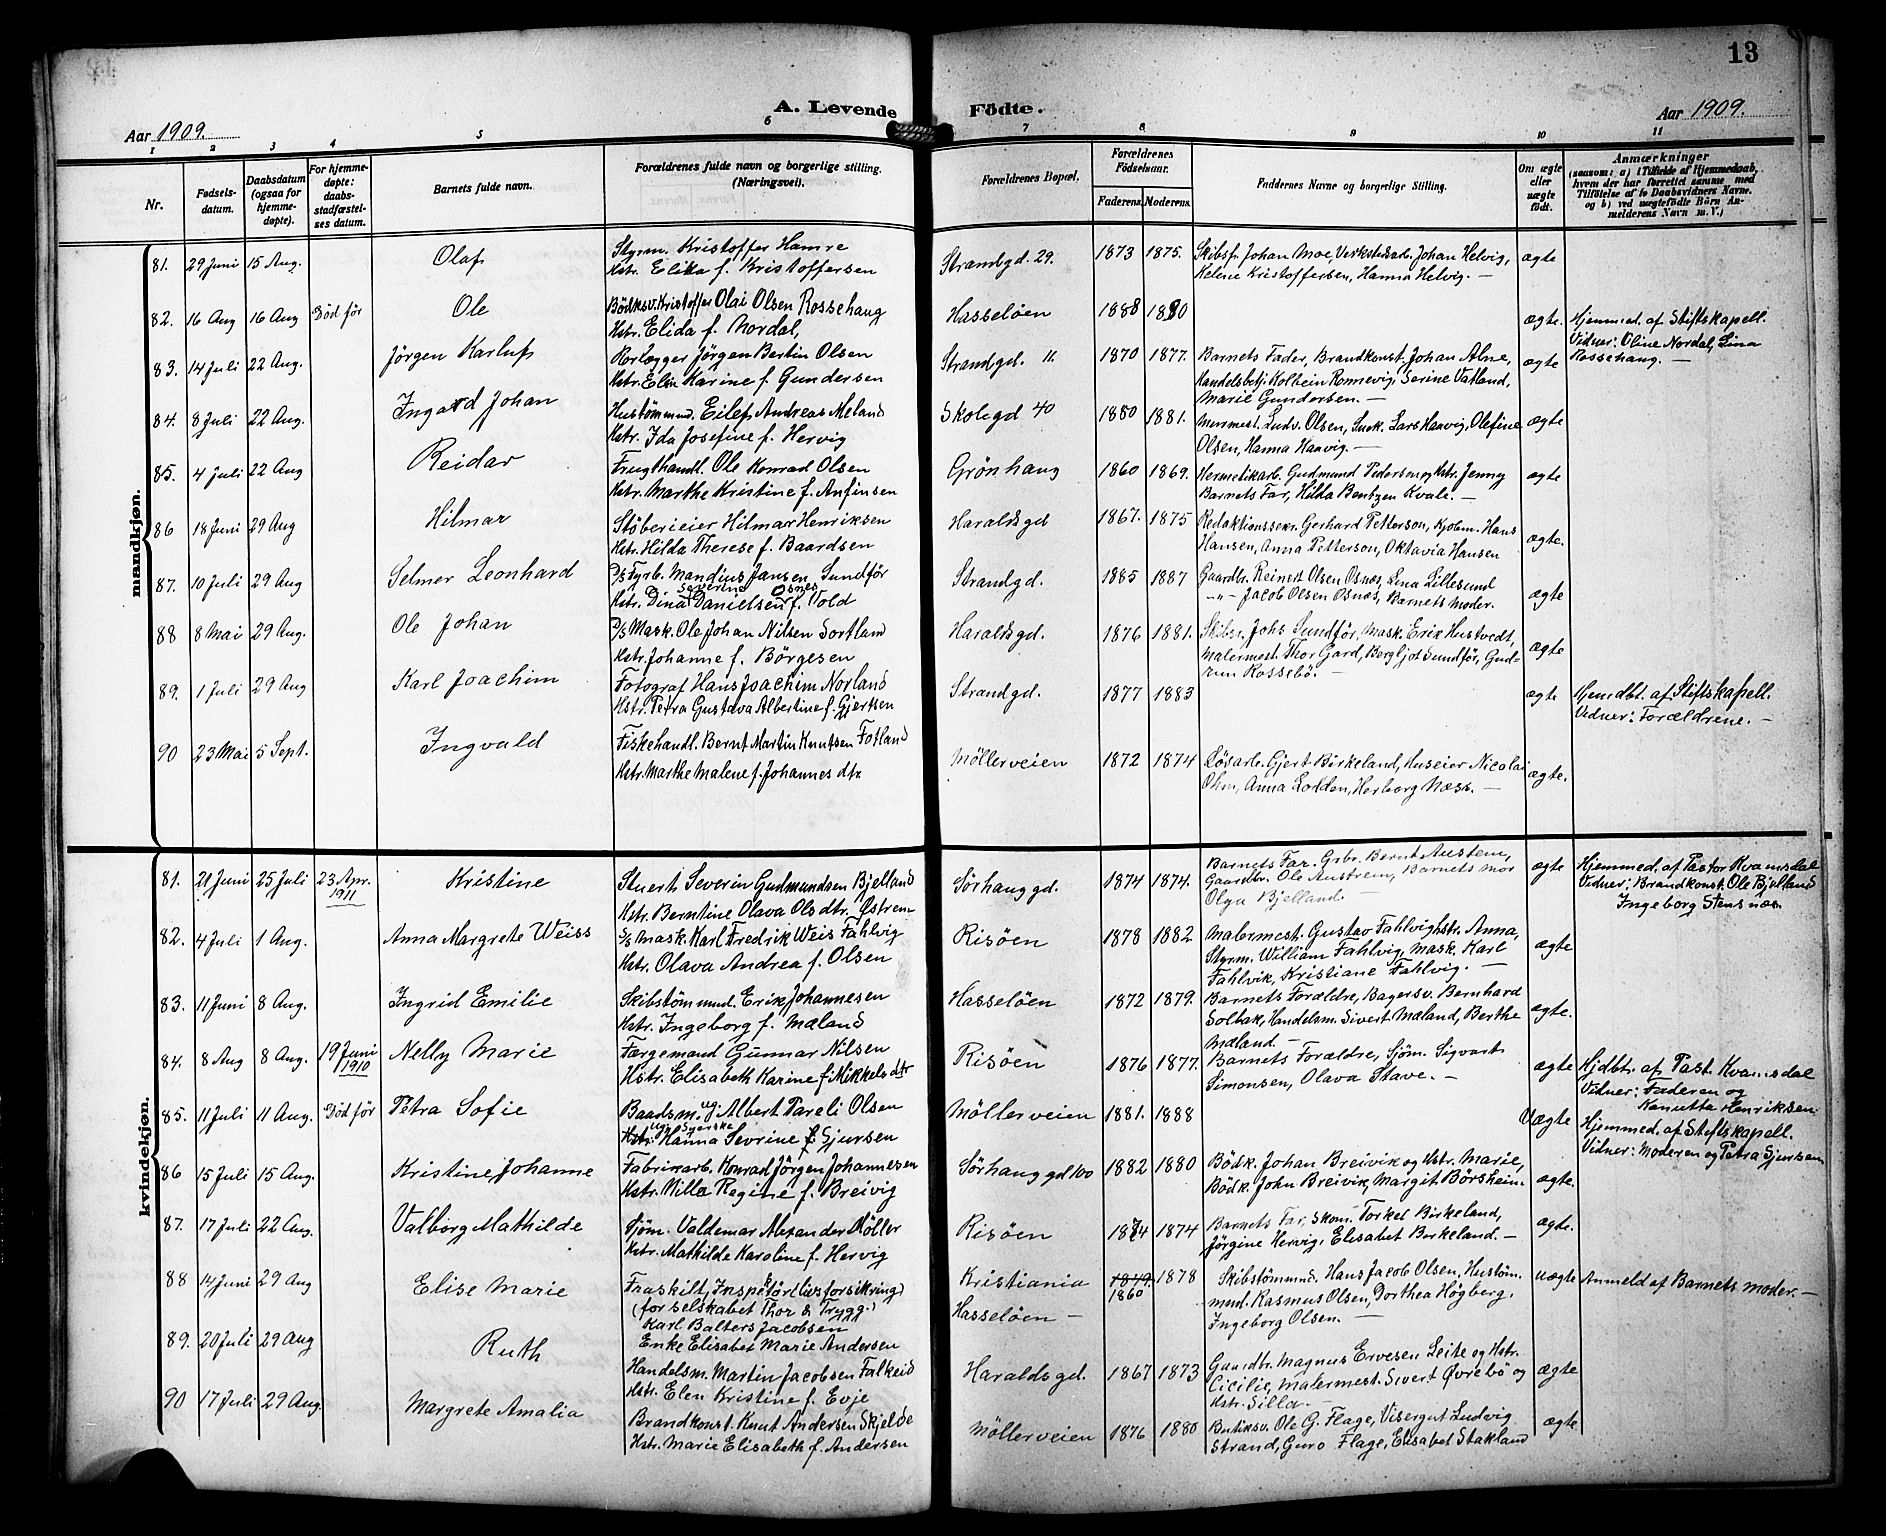 13
A. Levende Födte.
Aar 1909.
Aar 1909.
1 2 3 4 5 6 7 8 9 10 11
Nr.
Fødsels-
datum.
Daabsdatum
(ogsaa for
hjemme-
døpte).
For hjemme-
døpte:
daabs-
stadfæstel-
ses datum.
Barnets fulde navn.
Forældrenes fulde navn og borgerlige stilling.
(Næringsvei).
Forældrenes Bopæl.
Forældrenes
Fødselsaar.
Faderens. Moderens.
Faddernes Navne og borgerlige Stilling.
Om ægte
eller
uægte
født.
Anmærkninger
(saasom: a) i Tilfælde af Hjemmedaab,
hvem der har forrettet samme med
Tilføielse af to Daabsvidners Navne.
og b) ved uægtefödte Börn An-
melderens Navn m. V.)
mandkjøn.
81. 29 Juni 15 Aug. Olaf
Styrm. Kristoffer Hamre
Hstr. Elika f. Kristoffersen
Strandgd. 29. 1873 1875.
Skibsf. Johan Moe, Verkstedarb. Johan Helvig,
Helene Kristoffersen, Hanna Helvig. —
ægte
82. 16 Aug 16 Aug Död før Ole
Bödksv. Kristoffer Olai Olsen Rossehaug
Hstr. Elida f. Nordal,
Hasseløen 1888 1890
ægte.
Hjemmed. af Stiftskapell.
Vidner: Oline Nordal, Lina
Rossehaug. —
83. 14 Juli 22 Aug. Jörgen Karluf
Rorlægger Jörgen Bertin Olsen
Hstr. Elin Karine f. Gundersen
Strandgd. 11. 1870 1877.
Barnets Fader, Brandkonst. Johan Alne,
Handelsbetj. Kolbein Rønnevig, Serine Vatland,
Marie Gundersen. —
ægte
84. 8 Juli 22 Aug. Ingard Johan
Hustömmd. Eilef Andreas Meland
Hstr. Ida Josefine f. Hervig
Skolegd 40 1880 1881.
Murmest. Ludv. Olsen, Snek. Lars Haavig, Olefine
Olsen, Hanna Haavig. —
ægte
85. 4 Juli 22 Aug Reidar
Frugthandl. Ole Konrad Olsen
Hstr. Marthe Kristine f. Anfinsen
Grönhaug 1860 1869.
Hermetikarb. Gudmund Pedersen og Hstr. Jenny
Barnets Far, Hilda Bentzen Kvale. —
ægte
86 18 Juni 29 Aug Hilmar
Støberieier Hilmar Henriksen
Hstr. Hilda Therese f. Baardsen
Haraldsgd 1867. 1875
Redaktionssekr. Gerhard Petterson, Kjøbm. Hans
Hansen, Anna Petterson, Oktavia Hansen
ægte.
87. 10 Juli 29 Aug Selmer Leonhard
D/S Fyrb. Mandius Jansen Sundför
Severine Osnes
Hstr. Dina Danielsen f. Vold
Strandgd. 1885 1887
Gaardbr. Reinert Olsen Osnæs, Lina Lillesund
—"— Jacob Olsen Osnæs, Barnets Moder.
ægte
88 8 Mai 29 Aug. Ole Johan
D/S Mask. Ole Johan Nilsen Sortland
Hstr. Johanne f. Börgesen
Haraldsgd. 1876 1881.
Skibsr. Johs Sundför, Mask. Erik Hustvedt,
Malermest. Thor Gard, Bergljot Sundför, Gud-
run Rossebö. —
ægte
89. 1 Juli 29 Aug Karl Joachim
Fotograf Hans Joachim Norland
Hstr. Petra Gustava Albertine f. Gjertsen
Strandgd. 1877 1883
ægte
Hjemdbt. af Stiftskapell.
Vidner: Forældrene. —
90 23 Mai 5 Sept. Ingvald
Fiskehandl. Bernt Martin Knutsen Fotland
Hstr. Marthe Malene f. Johannes dtr
Möllerveien 1872 1874
Løsarb. Gjert Birkeland, Huseier Nicolai
Ohm, Anna Lodden, Herborg Næss. —
ægte.
kvindekjøn.
81. 21 Juni 25 Juli 23 Apr. 1911 Kristine
Stuert Severin Gudmundsen Bjelland
Hstr. Berntine Olava Ols dtr. Østrem
Sörhauggd. 1874 1874.
Barnets Far. Grbr. Bernt Austem,
Gaardbr. Ole Austrem, Barnets Mor
Olga Bjelland. —
ægte
Hjemmed. af Pastor Kvamsdal
Vidner: Brandkonst. Ole Bjelland
Ingeborg Stensnæs.
82. 4 Juli 1 Aug. Anna Margrete Weiss
S/S Mask. Karl Fredrik Weis Fahlvig
Hstr. Olava Andrea f. Olsen
Risöen 1878 1882
Malermest. Gustav Fahlvig Hstr. Anna,
Styrm. William Fahlvig, Mask. Karl
Fahlvik, Kristiane Fahlvig. —
ægte
83. 11 Juni 8 Aug. Ingrid Emilie
Skibstömmd. Erik Johannesen
Hstr. Ingeborg f. Mæland
Hasselöen 1872 1879.
Barnets Forældre, Bagersv. Bernhard
Solbak, Handelsm. Sivert Mæland, Berthe
Mæland. —
ægte.
84. 8 Aug 8 Aug. 19 Juni 1910 Nelly Marie
Færgemand Gunnar Nilsen
Hstr. Elisabeth Karine f. Mikkels dtr
Risöen 1876 1877.
Barnets Forældre, Sjöm. Sigvart
Simonsen, Olava Stave. —
ægte
Hjdbt. af Past. Kvamsdal
Vidner: Faderen og
Hanutta Henriksen
85. 11 Juli 11 Aug. Död før Petra Sofie
Baadsm. ug. Albert Pareli Olsen
Ug. Syerske
Hstr. Hanna Sevrine f. Gjursen
Möllerveien 1881. 1888
Uægte
Hjemmed. af Stiftskapell.
Vidner: Moderen og Petra Gjursen
86 15 Juli 15 Aug. Kristine Johanne
Fabrikarb. Konrad Jörgen Johannesen
Hstr. Milla Regine f. Breivig
Sörhauggd 100 1882 1880
Bödk. Johan Breivik og Hstr. Marie,
Bödk. John Breivik, Margit Börsheim.
ægte.
87. 17 Juli 22 Aug. Valborg Mathilde
Sjöm. Valdemar Alexander Möller
Hstr. Mathilde Karoline f. Hervig
Risöen 1874 1874
Barnets Far, Skom. Torkel Birkeland,
Jörgine Hervig, Elisabet Birkeland. —
ægte.
88 14 Juni 29 Aug Elise Marie
Fraskilt, Inspektör (livsforsikring)
(for selskabet Thor & Trygg.)
Karl Balters Jacobsen
Enke Elisabet Marie Andersen
Kristiania
Hasselöen —
1849. 1878
1860
Skibstömmd. Hans Jacob Olsen, Hustöm-
md. Rasmus Olsen, Dorthea Högberg,
Ingeborg Olsen. —
uægte
Anmeld af Barnets moder. —
89. 20 Juli 29 Aug Ruth
Handelsm. Martin Jacobsen Falkeid
Hstr. Elen Kristine f. Evje
Haraldsgd. 1867 1873
Gaardbr. Magnus Ervesen Leite og Hstr.
Cicilie, Malermest. Sivert Øvrebö og
Hstr. Silla. —
ægte
90 17 Juli 29 Aug. Margrete Amalia
Brandkonst. Knut Andersen Skjelde
Hstr. Marie Elisabeth f. Andersen
Möllerveien 1876 1880
Butiksv. Ole G. Flage, Visergut Ludvig
Strand, Guro Flage, Elisabet Stakland
ægte